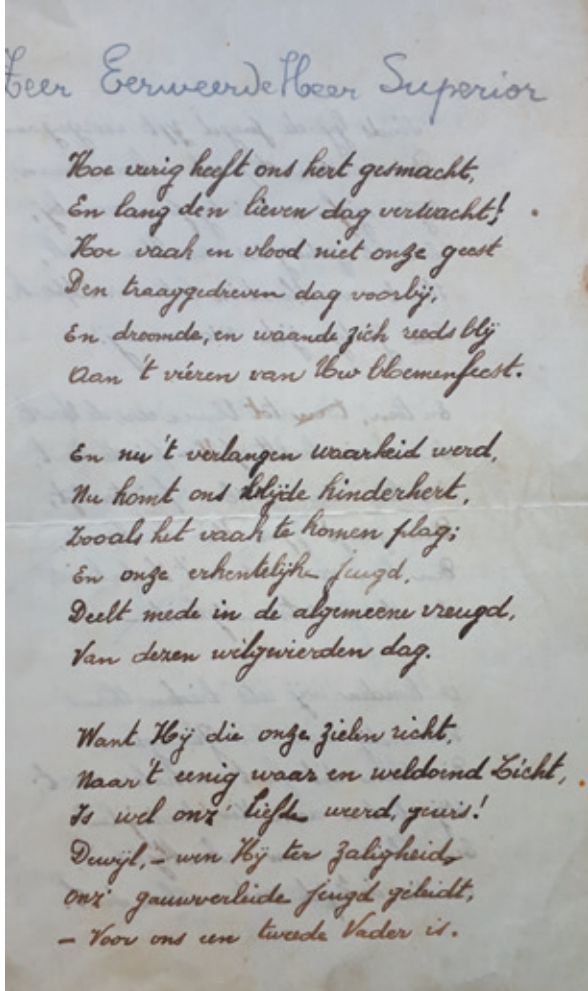 Zeer Eerweerde Heer Superior
Hoe vurig heeft ons hert gesmacht,
En lang den lieven dag verwacht!
Hoe vaak en vlood niet onze geest
Den traaggedreven dag voorbij,
En droomde, en waande zich reeds blij
Aan 't vieren van Uw bloemenfeest.
En nu 't verlangen waarheid werd,
Nu komt ons blijde kinderhert,
Zooals het vaak te komen plag;
En onze erkentelijke jeugd,
Deelt mede in de algemeene vreugd,
Van dezen wilgevierden dag.
Want Hij die onze zielen richt,
Naar 't eenig waar en weldoend Licht,
Is wel onz' liefde weerd, gewis!
Dewijl, – wen Hij ter zaligheid,
Onz' gauwverleide jeugd geleidt,
– Voor ons een tweede Vader is.